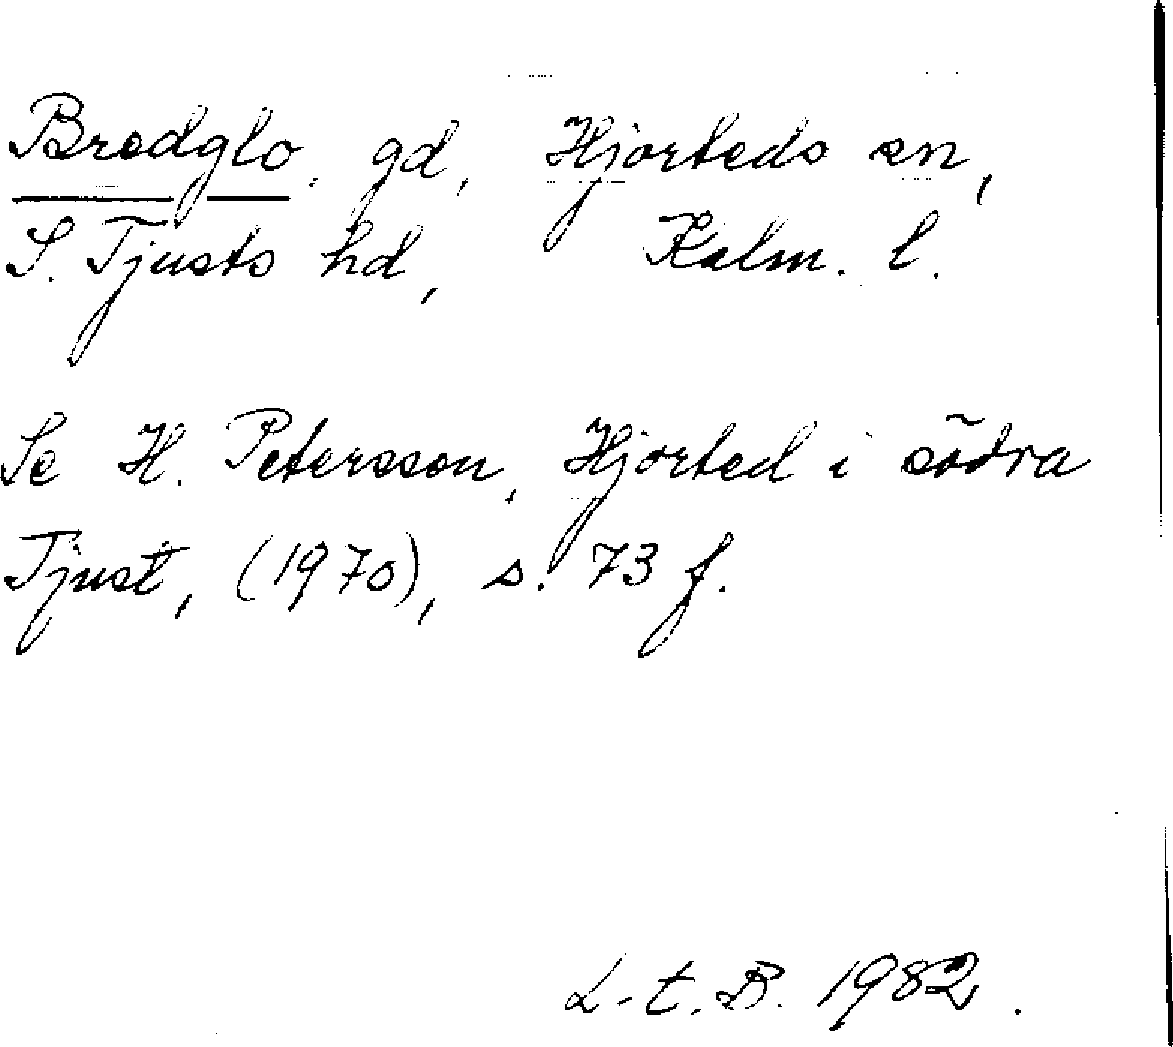 Bredglo, gd, Hjorteds sn,
S. Tjusts hd, Kalm. l.
Se H. Petersson, Hjorted i södra
Tjust, (1970), s. 73 f.
L-t. B. 1982.